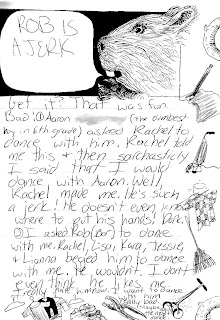 ROB IS
A JERK
Get it? That was fun.
Bad: ① Aaron (the dumbest
boy in 6th grade) asked Rachel to
dance with him. Rachel told
me this & then sarchasticly
I said that I would
dance with Aaron. Well,
Rachel made me. He's such
a jerk! He doesn't even know
where to put his hands!
② I asked Rob to dance
with me. Rachel, Lisa, Kara, Jessie,
& Lianna begged him to dance
with me. He wouldn't. I don't
even think he likes me.
I really
want to dance
with him